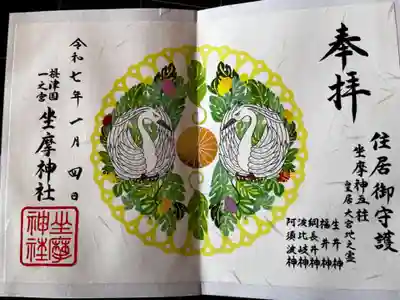 奉拝
住居御守護
坐摩神五柱
皇居大宮地之霊
生井神
福井神
綱長井神
波比岐神
阿須波神
令和七年一月四日
摂津国
一之宮
坐摩神社
坐摩
神社